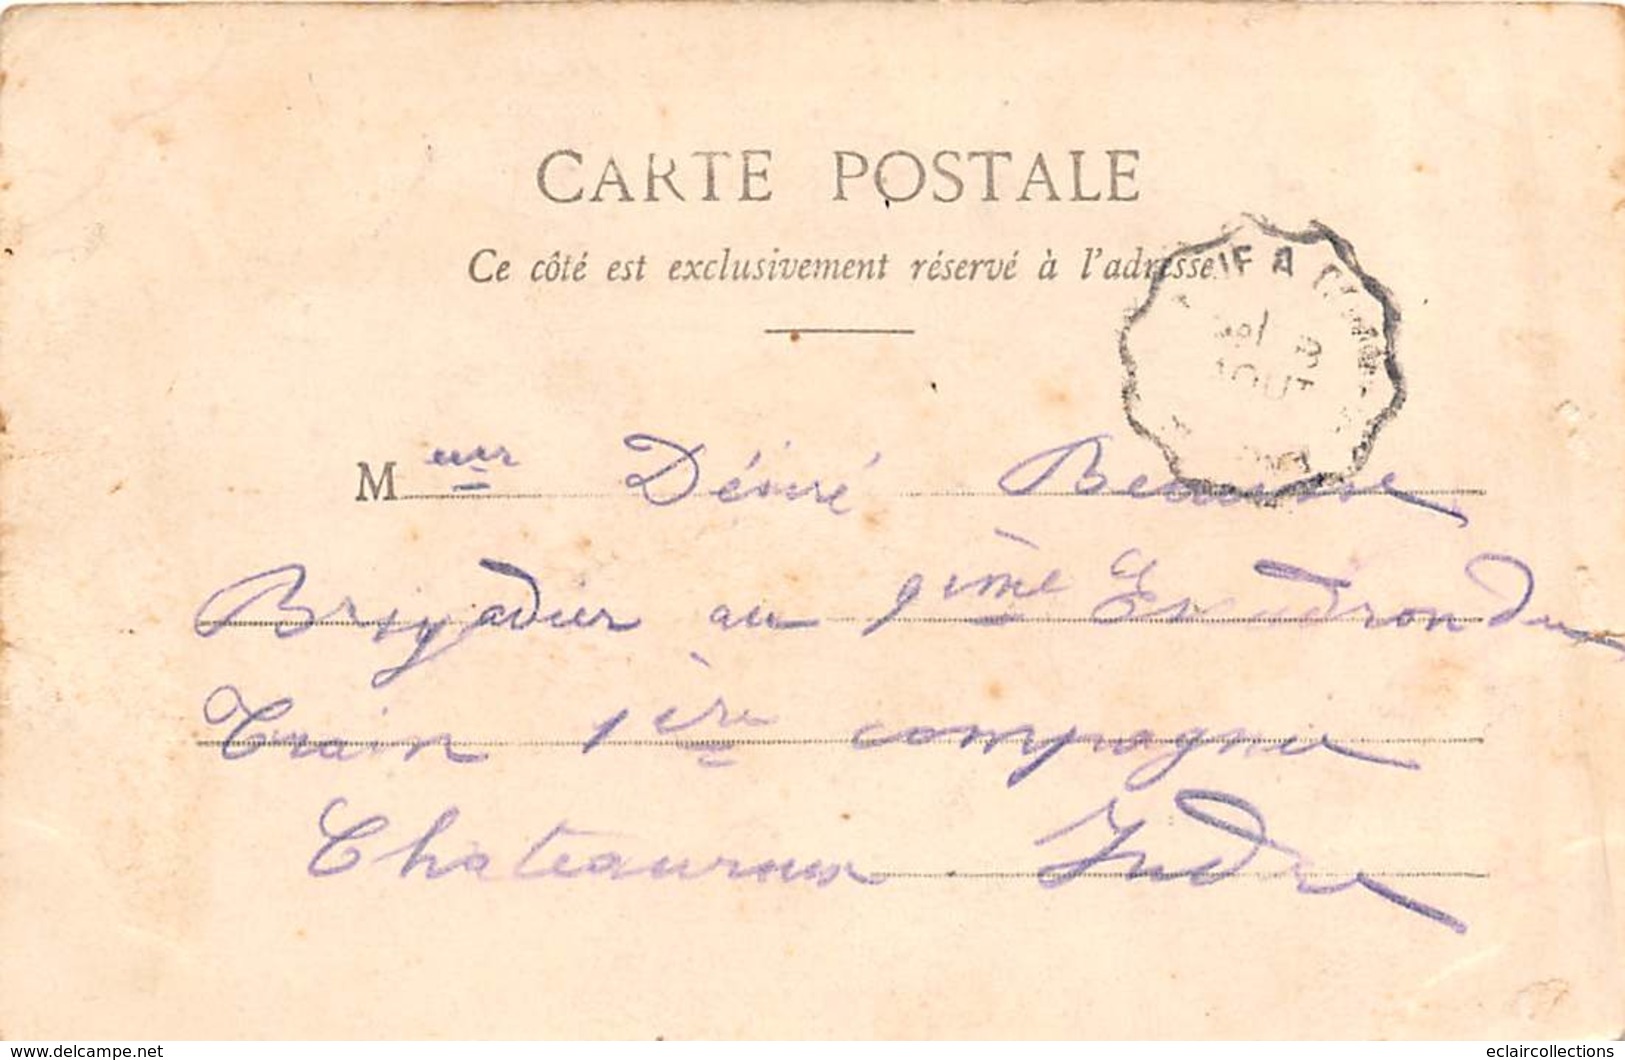 CARTE POSTALE
Ce côté est exclusivement réservé à l'adresse.
IF A
AOUT
M eur Désiré
Brigadier au 9ième Escadron du
Train 1ère compagnie
Chateauroux Indre
www.delcampe.net
eclaircollections